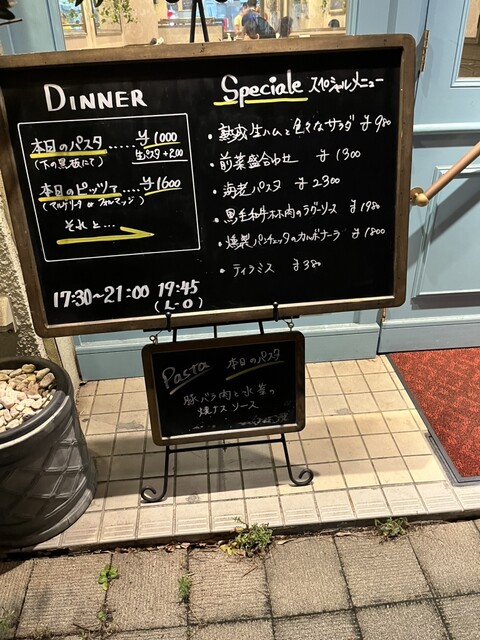 DINNER
本日のパスタ.....¥1000
(下の黒板にて) 生パスタ+200
本日のピッツァ....¥1600
(マルゲリータ or フォルマッジ)
それと...
17:30~21:00 19:45
(L-O)
Speciale スペシャルメニュー
・熟成生ハムと色々なサラダ ¥980
・前菜盛合わせ ¥1300
・海老パスタ ¥2300
・黒毛和牛ホホ肉のラグーソース ¥1980
・燻製パンチェッタのカルボナーラ ¥1800
・ティラミス ¥380
Pasta 本日のパスタ
豚バラ肉と水菜の
焼ナスソース